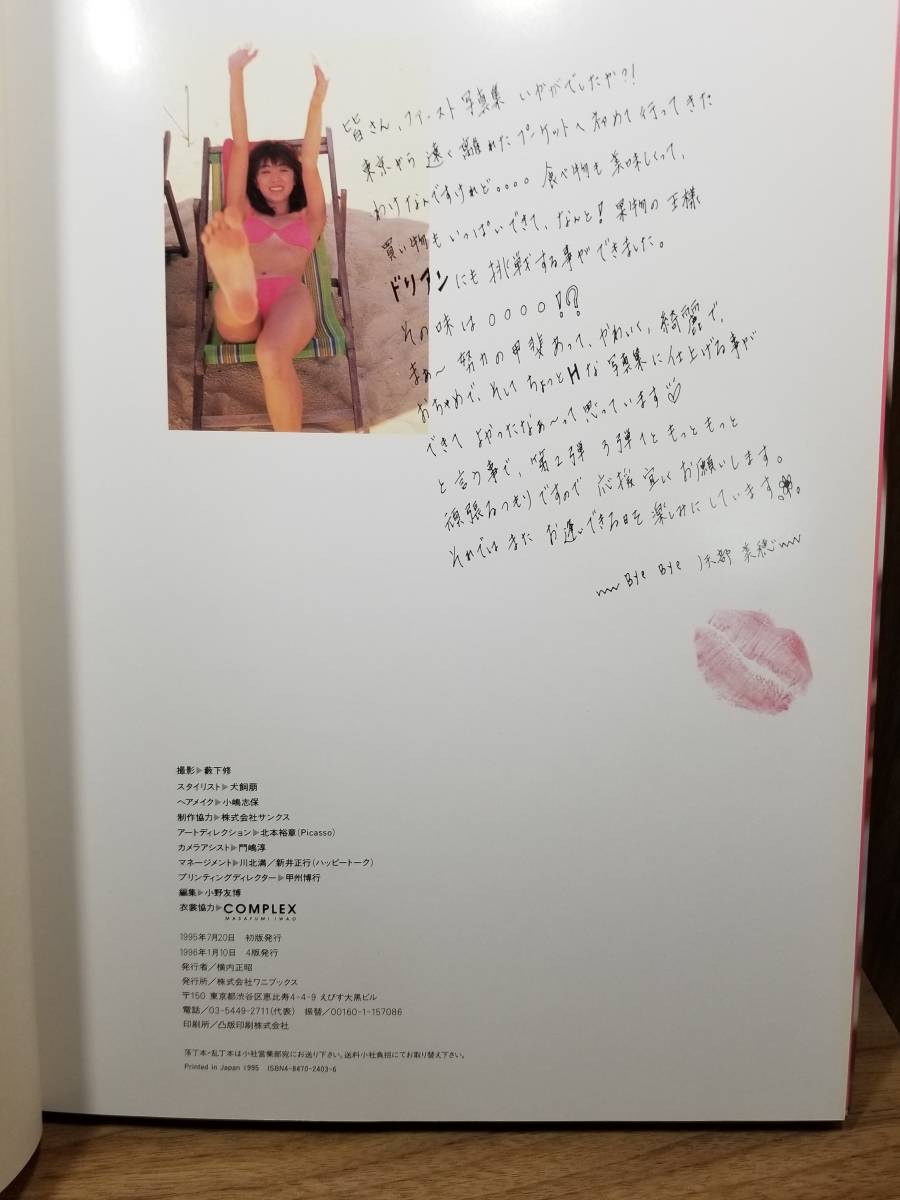 皆さん、ファースト写真集 いかがでしたか?!
東京から 遠く離れたプーケットへ 初めて行ってきた
わけなんですけれど。。。。食べ物も美味しくって、
買い物もいっぱいできて、なんと!果物の王様
ドリアンにも挑戦する事ができました。
その味は。。。。!?
まぁ〜 努力の甲斐あって、かわいく、綺麗で、
おちゃめで、そしてちょっとHな写真集に仕上げる事が
できて よかったなぁ〜って思っています♡
と言う事で、第2弾 3弾と もっともっと
頑張るつもりですので 応援宜しくお願いします。
それでは また お逢いできる日を 楽しみにしています。
Bye Bye 美穂
撮影▶藪下修
スタイリスト▶犬飼朋
ヘアメイク▶小嶋志保
制作協力▶株式会社サンクス
アートディレクション▶北本裕章(Picasso)
カメラアシスト▶門嶋淳
マネージメント▶川北満/新井正行(ハッピートーク)
プリンティングディレクター▶甲州博行
編集▶小野友博
衣裳協力▶COMPLEX
MASAFUMI IWAO
1995年7月20日 初版発行
1996年1月10日 4版発行
発行者/横内正昭
発行所/株式会社ワニブックス
〒150 東京都渋谷区恵比寿4-4-9 えびす大黒ビル
電話/03-5449-2711(代表) 振替/00160-1-157086
印刷所/凸版印刷株式会社
落丁本・乱丁本は小社営業部宛にお送り下さい。送料小社負担にてお取り替え下さい。
Printed in Japan 1995 ISBN4-8470-2403-6